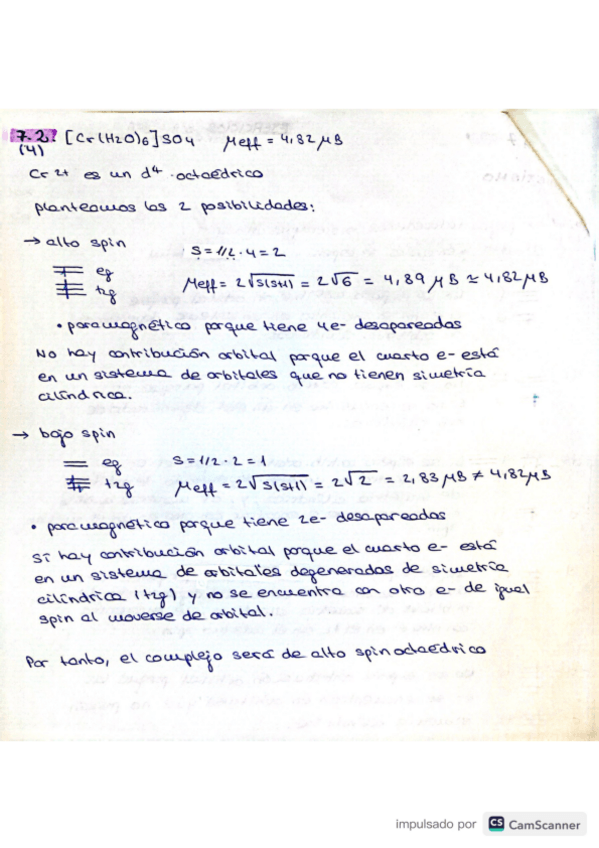 7.2. [Cr(H2O)6]SO4 μeff = 4,82 μB
(4)
Cr2+ es un d4 octaédrico
planteamos las 2 posibilidades:
→ alto spin S = 1/2 · 4 = 2
eg
t2g μeff = 2√S(S+1) = 2√6 = 4,89 μB ≃ 4,82 μB
• paramagnético porque tiene 4e- desapareados
No hay contribución orbital porque el cuarto e- está
en un sistema de orbitales que no tienen simetría
cilíndrica.
→ bajo spin
eg S = 1/2 · 2 = 1
t2g μeff = 2√S(S+1) = 2√2 = 2,83 μB ≠ 4,82 μB
• paramagnético porque tiene 2e- desapareados
Sí hay contribución orbital porque el cuarto e- está
en un sistema de orbitales degenerados de simetría
cilíndrica (t2g) y no se encuentra con otro e- de igual
spin al moverse de orbital.
Por tanto, el complejo será de alto spin octaédrico
impulsado por CS CamScanner